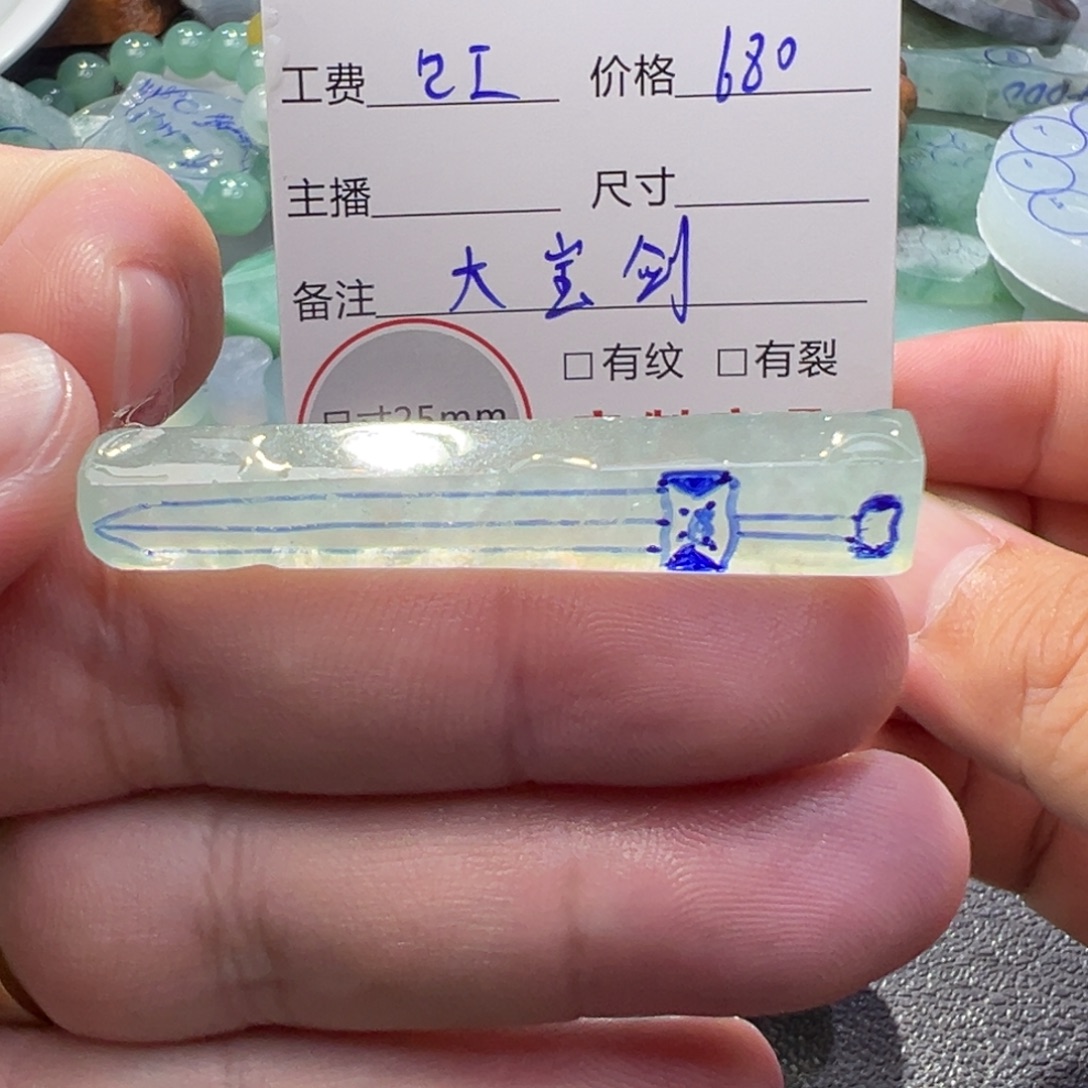 工费 已工 价格 680
主播 尺寸
备注 大宝剑
□有纹 □有裂
尺寸25mm